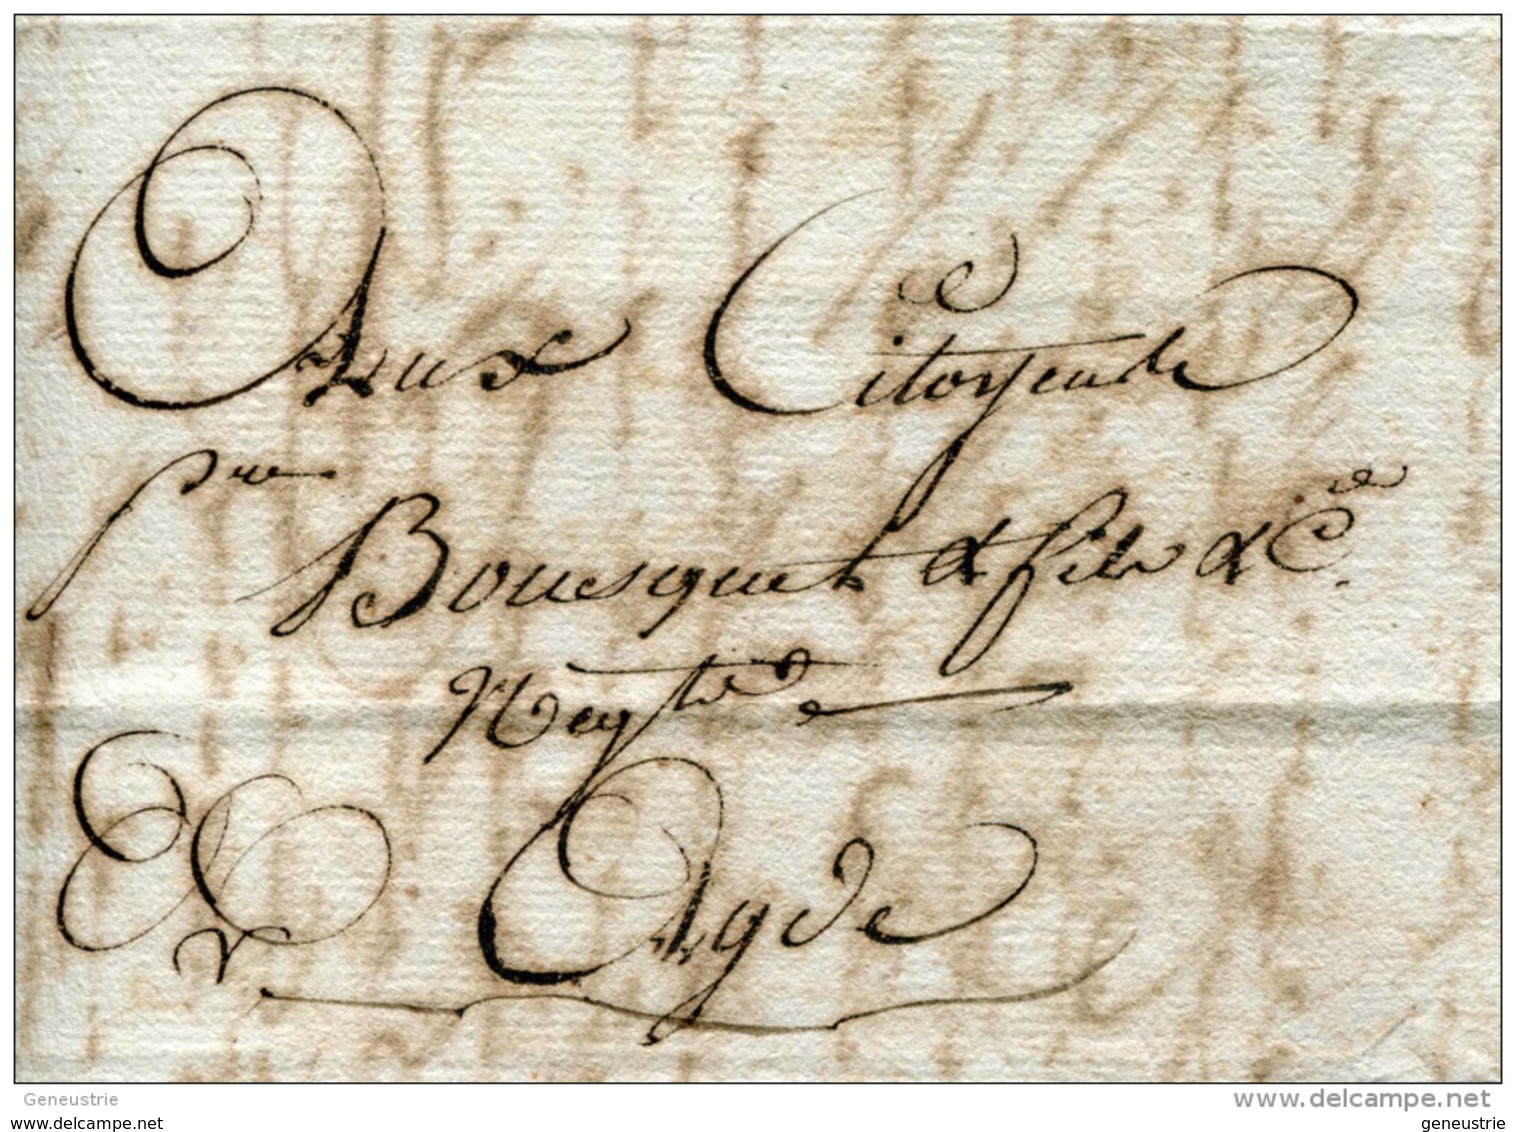 Aux Citoyens
Bousquet & fils & Cie
Negts
A Agde
Geneustrie
www.delcampe.net
www.delcampe.net
geneustrie